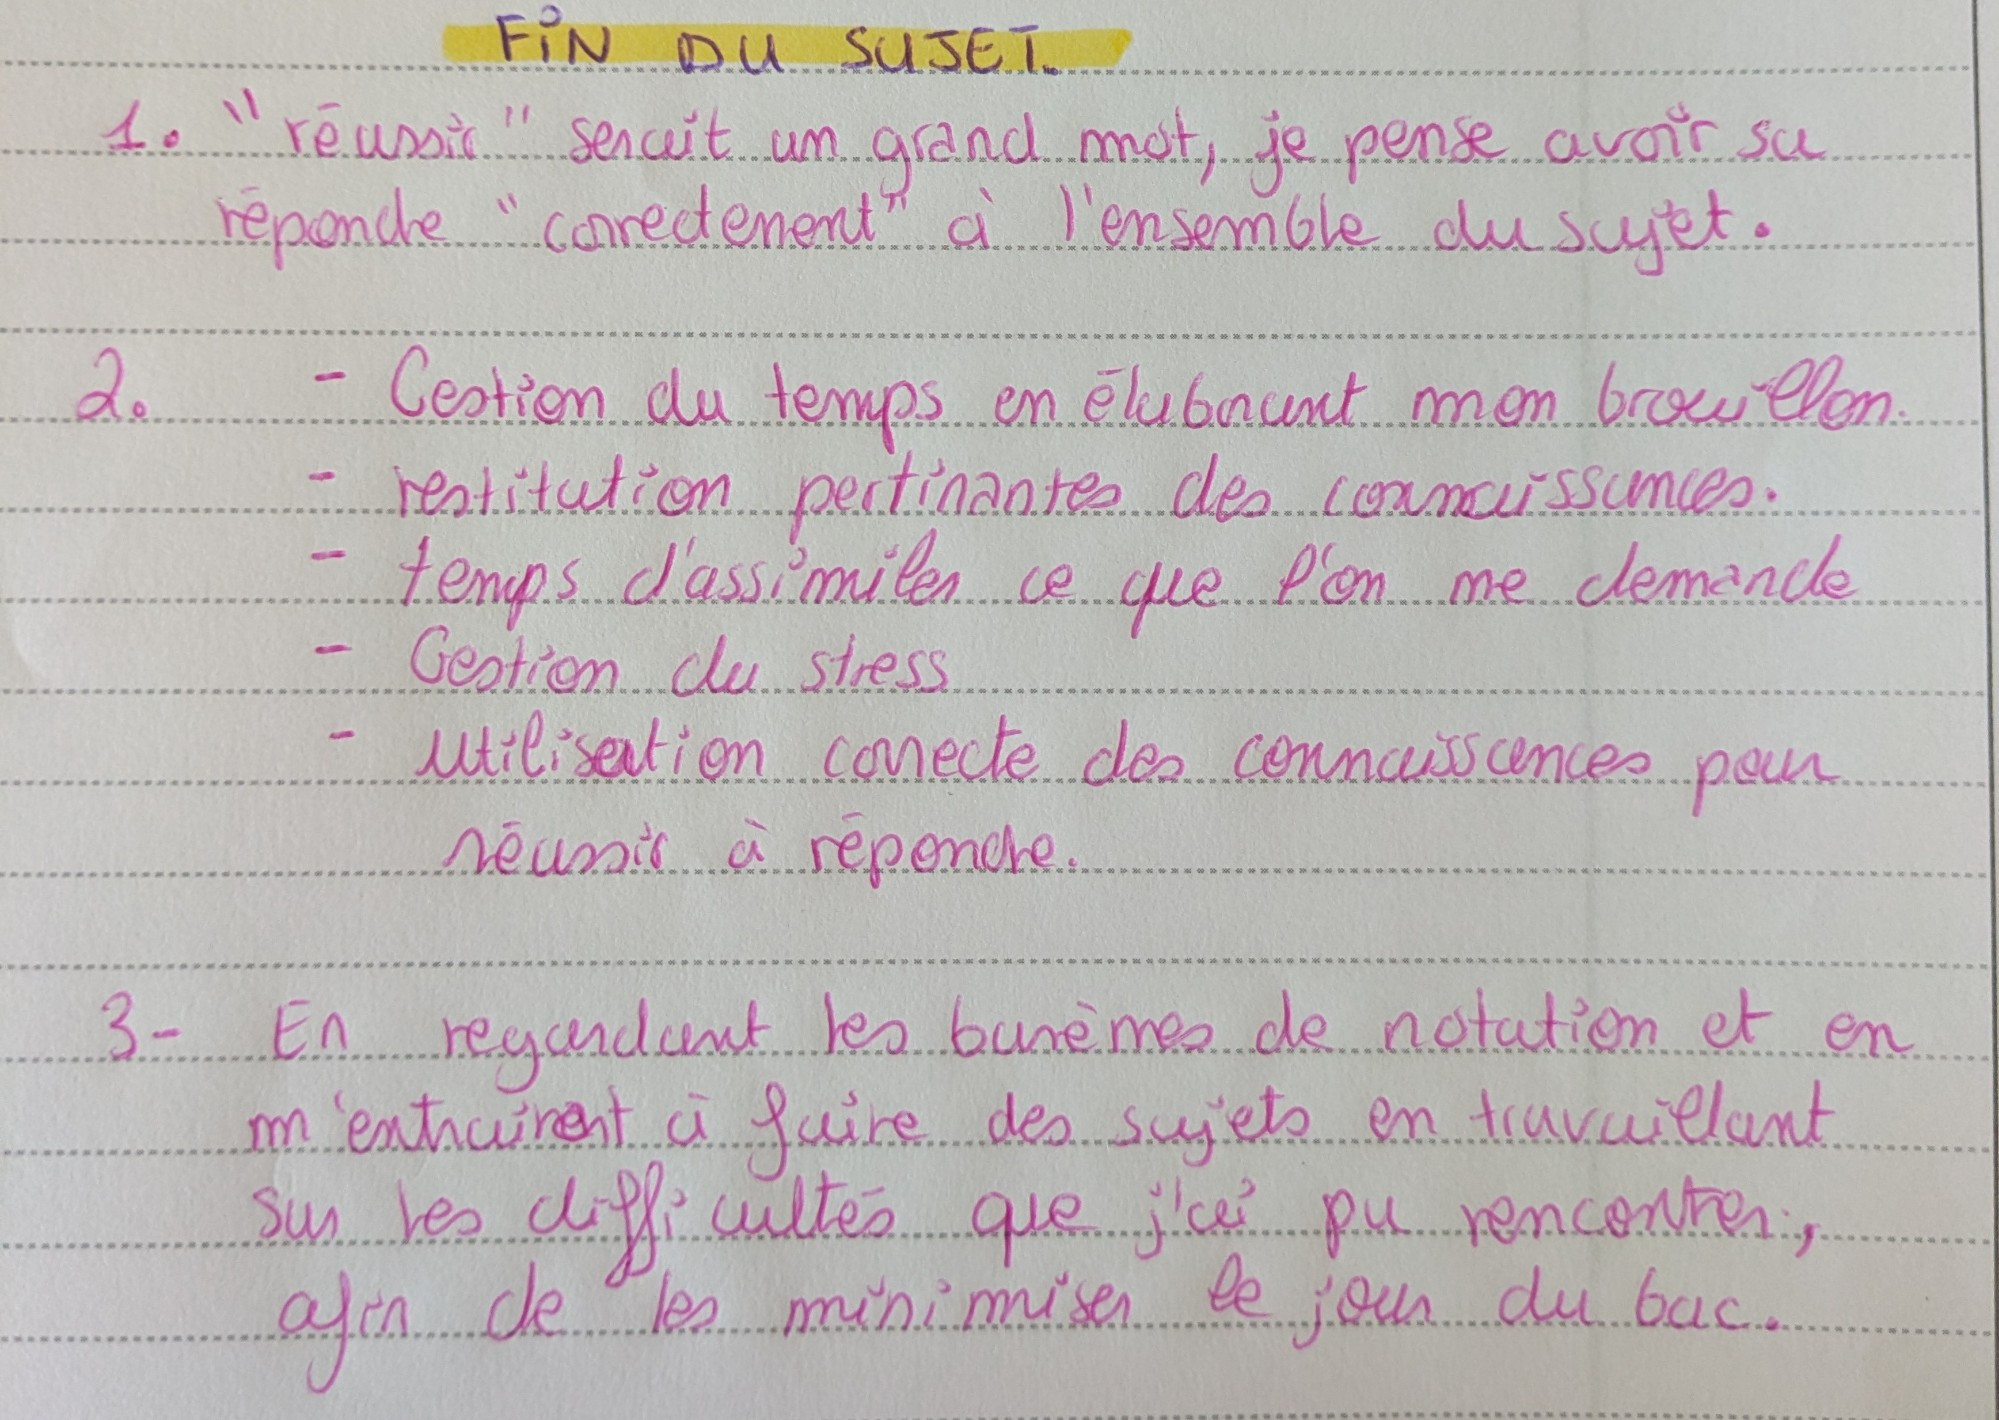 FiN DU SUJET.
1. "réussir" serait un grand mot, je pense avoir su
répondre "correctement" à l'ensemble du sujet.
2. - Gestion du temps en élaborant mon brouillon.
- restitution pertinantes des connaissances.
- temps d'assimiler ce que l'on me demande
- Gestion du stress
- utilisation correcte des connaissances pour
réussir à répondre.
3- En regardant les barèmes de notation et en
m'entrainent à faire des sujets en travaillant
sur les difficultés que j'ai pu rencontrer,
afin de les minimiser le jour du bac.